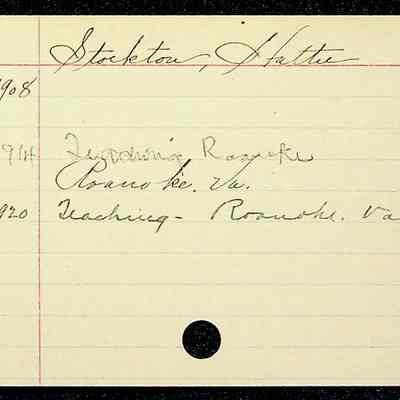 Stockton, Hattie
908
914 Teaching Roanoke
Roanoke. Va.
920 Teaching - Roanoke. Va